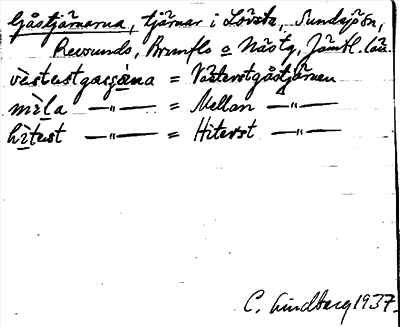 Gåstjärnarna, tjärnar i Lövsta, Sundsjön,
Revsunds, Brunflo o Näs tg, Jämtl. län
västestgasşána = Västerstgåstjärnen
mèla —"— = Mellan —"—
hìtest —"— = Hiterst —"—
C. Lindberg 1937.